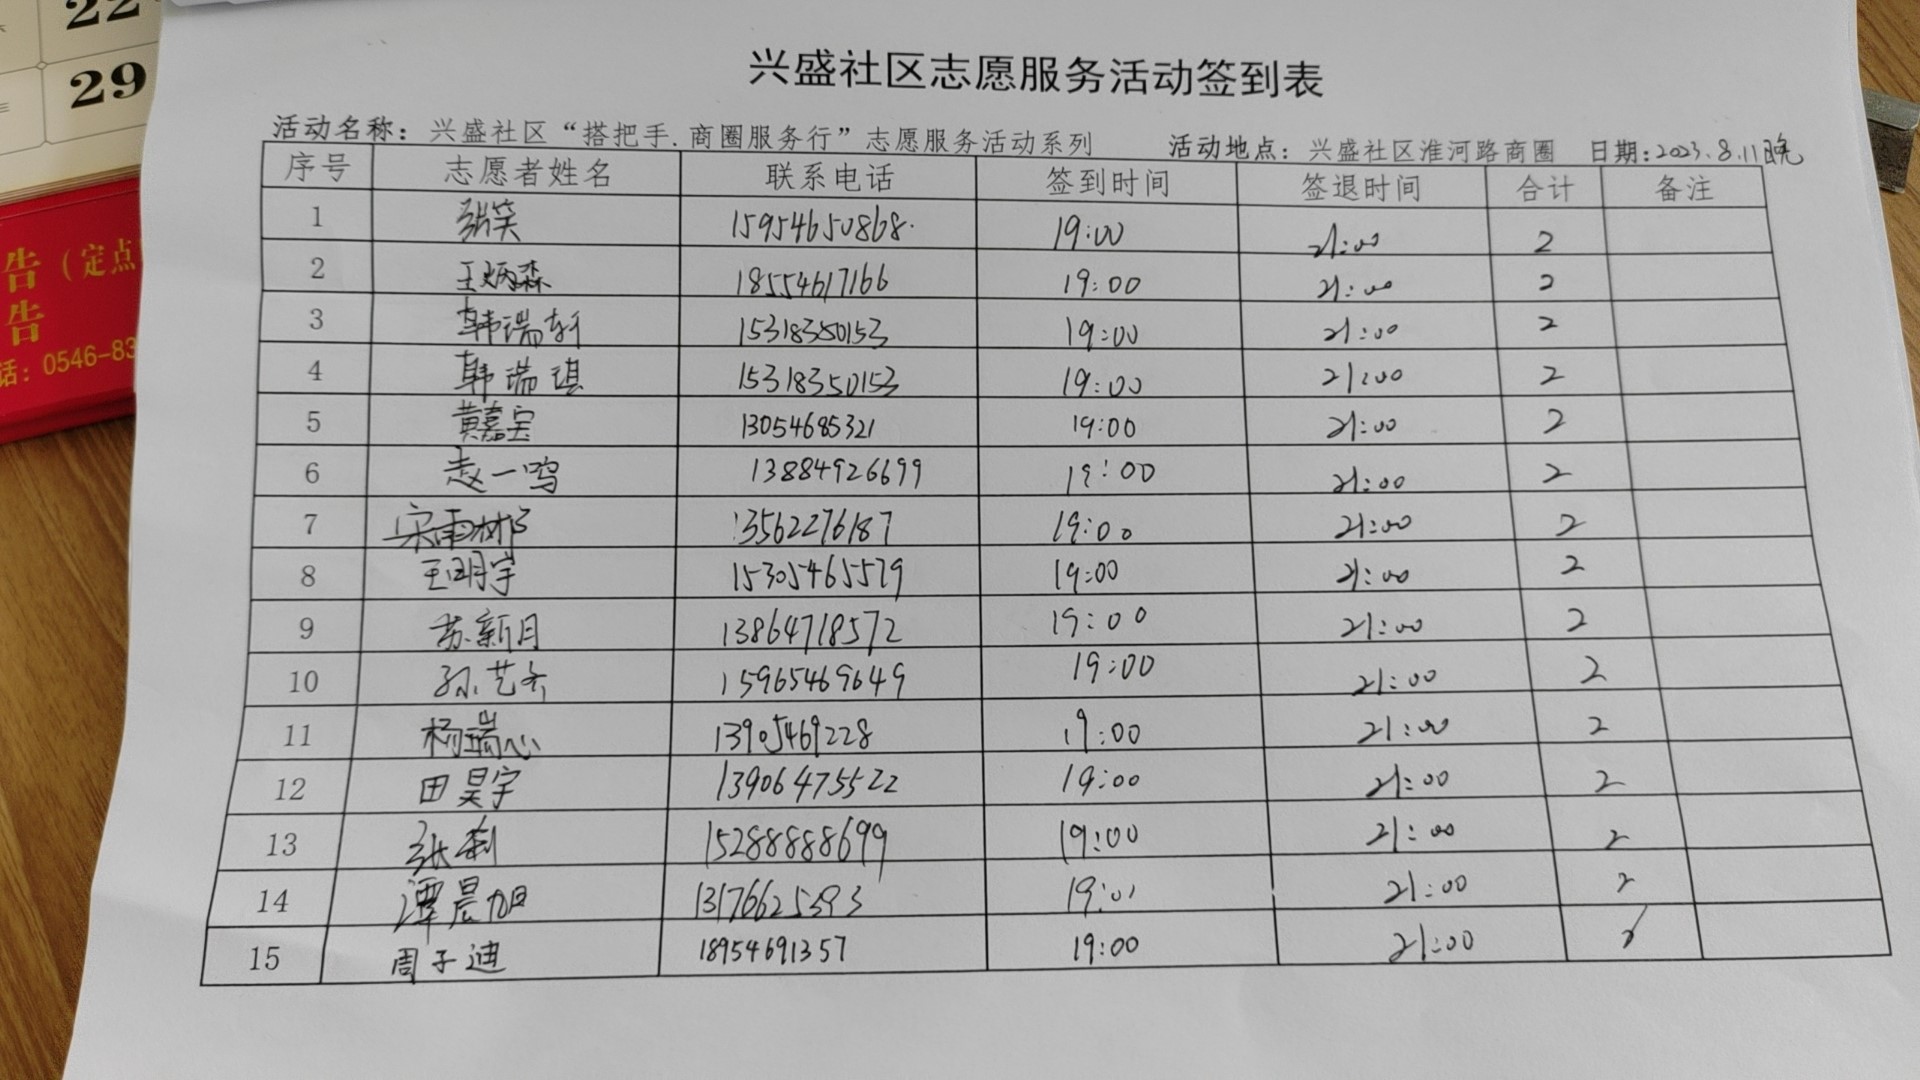 22
29
告（定点
告
话：0546-83
兴盛社区志愿服务活动签到表
活动名称：兴盛社区“搭把手.商圈服务行”志愿服务活动系列 活动地点：兴盛社区淮河路商圈 日期:2023.8.11晚
序号 志愿者姓名 联系电话 签到时间 签退时间 合计 备注
1 张笑 15954650868. 19:00 21:00 2
2 王炳森 18554617166 19:00 21:00 2
3 韩瑞轩 15318350153 19:00 21:00 2
4 韩瑞琪 15318350153 19:00 21:00 2
5 黄嘉宝 13054685321 19:00 21:00 2
6 赵一鸣 13884926699 19:00 21:00 2
7 宋雨彬 13562276187 19:00 21:00 2
8 王明宇 15305465579 19:00 21:00 2
9 苏新月 13864718572 19:00 21:00 2
10 孙艺齐 15965469649 19:00 21:00 2
11 杨瑞心 13905469228 19:00 21:00 2
12 田昊宇 13906475522 19:00 21:00 2
13 张 15288888699 19:00 21:00 2
14 谭晨旭 19:01 21:00 2
15 周子迪 18954691357 19:00 21:00